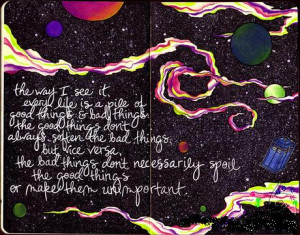 the way I see it,
every life is a pile of
good things & bad things.
the good things don't
always soften the bad things,
but vice versa,
the bad things don't necessarily spoil
the good things
or make them unimportant.